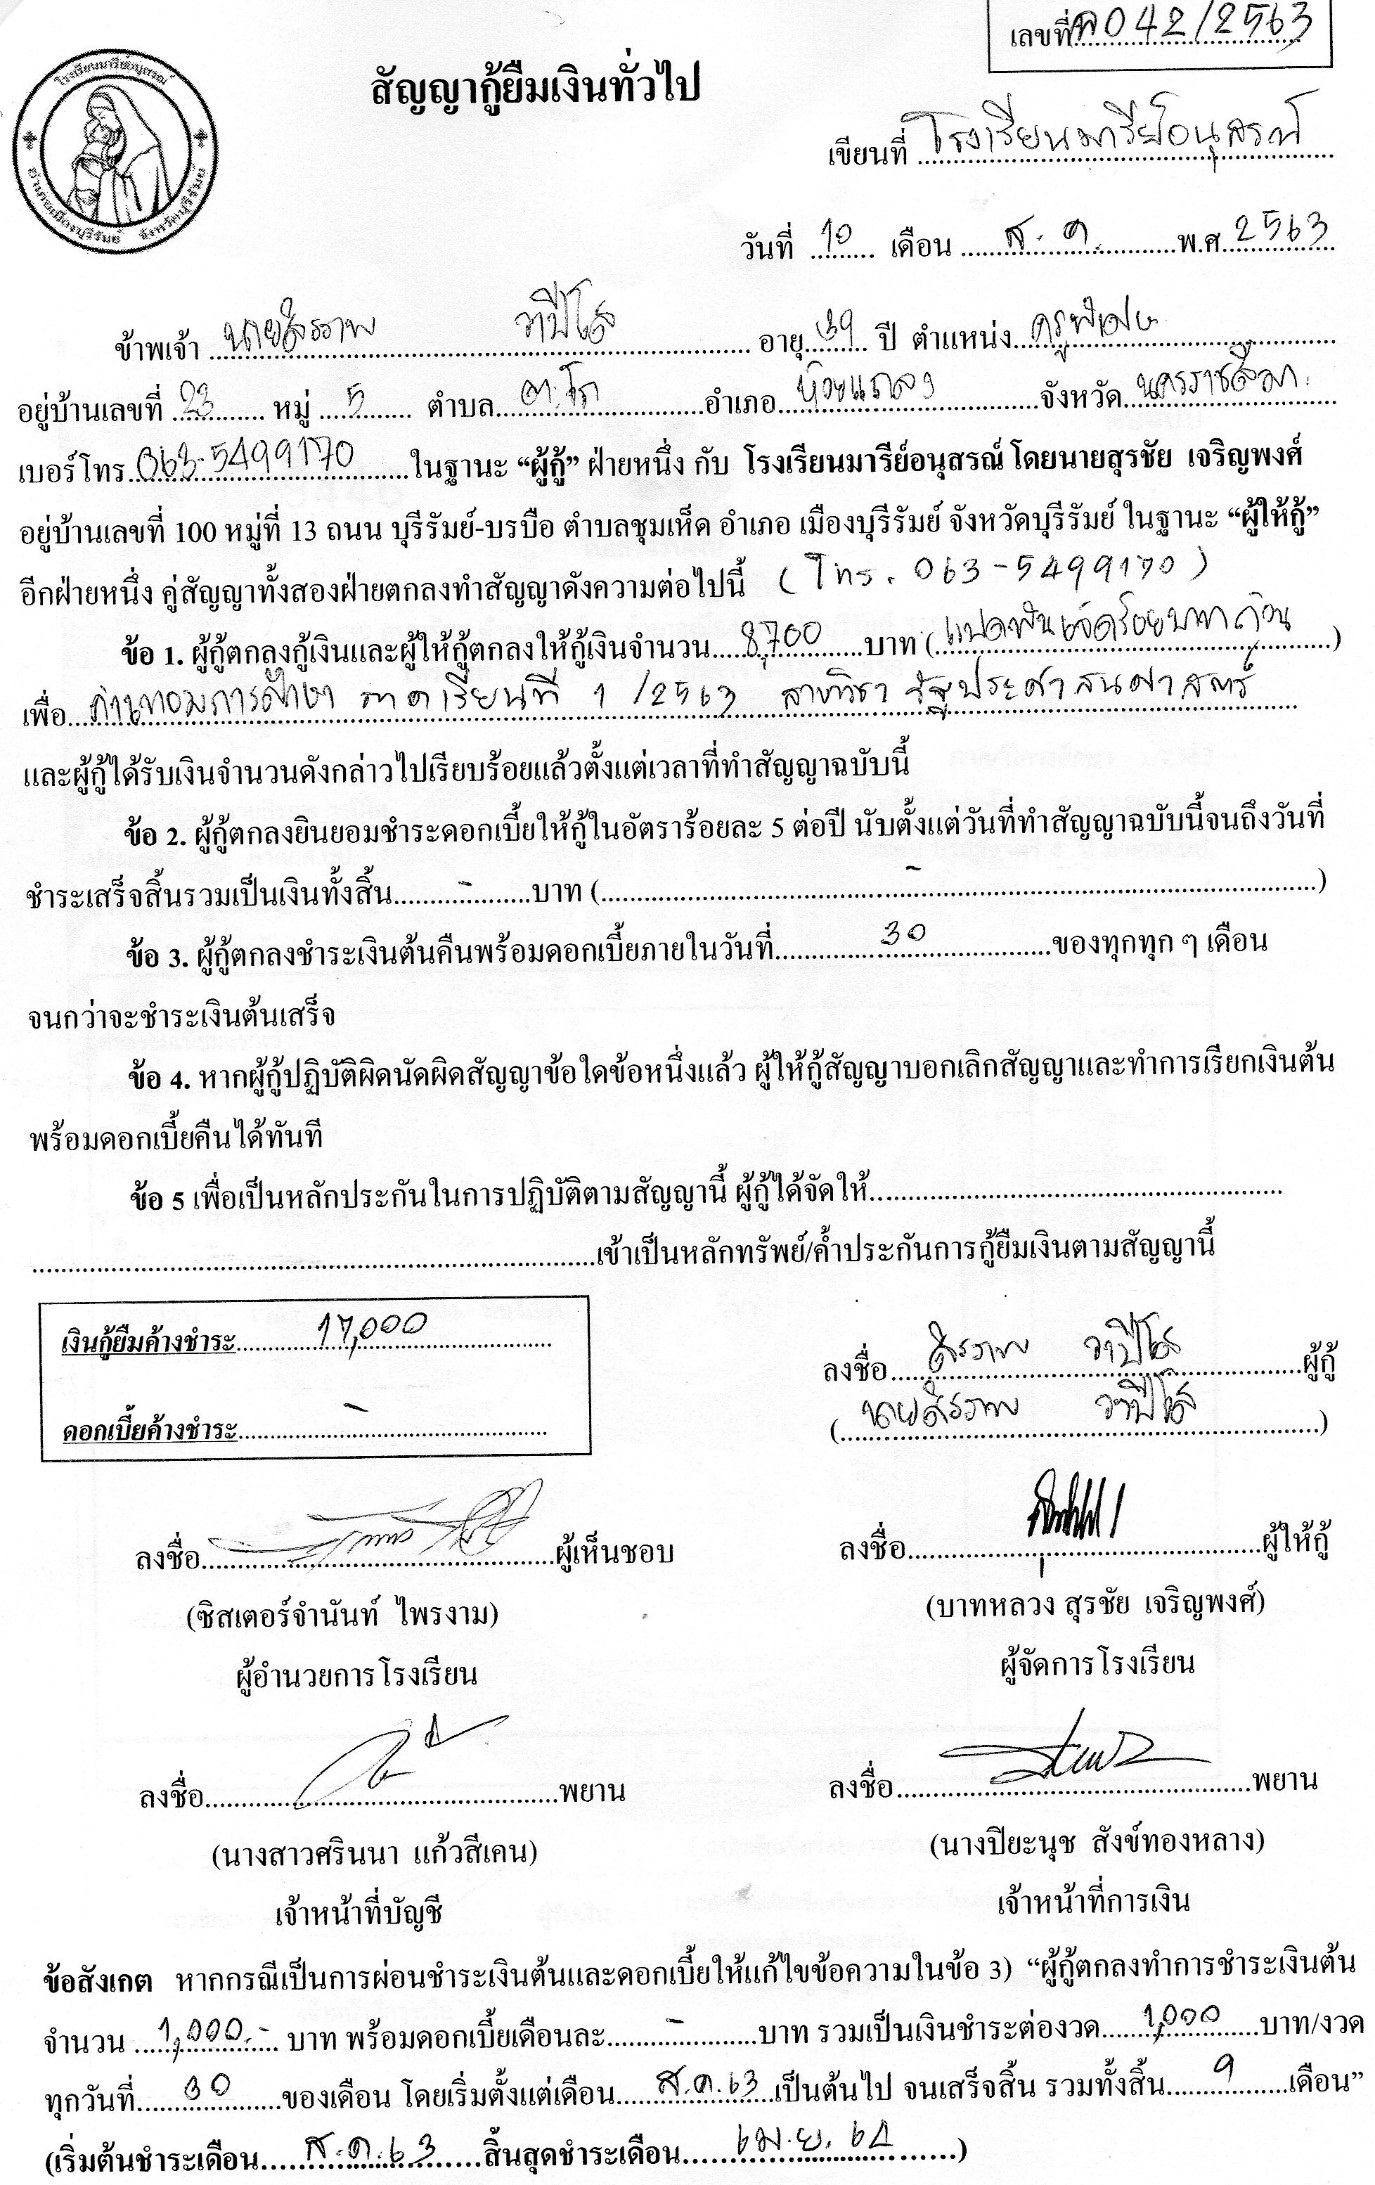 เลขที่ 042/2563
โรงเรียนมารีย์อนุสรณ์
อำเภอเมืองบุรีรัมย์ จังหวัดบุรีรัมย์
สัญญากู้ยืมเงินทั่วไป
เขียนที่ โรงเรียนมารีย์อนุสรณ์
วันที่ 10 เดือน ส.ค. พ.ศ. 2563
ข้าพเจ้า นาย วาปีโส อายุ 39 ปี ตำแหน่ง ครูพิเศษ
อยู่บ้านเลขที่ 23 หมู่ 5 ตำบล ตะโก อำเภอ ห้วยแถลง จังหวัด นครราชสีมา
เบอร์โทร 063-5499170 ในฐานะ “ผู้กู้” ฝ่ายหนึ่ง กับ โรงเรียนมารีย์อนุสรณ์ โดยนายสุรชัย เจริญพงศ์
อยู่บ้านเลขที่ 100 หมู่ที่ 13 ถนน บุรีรัมย์-บรบือ ตำบลชุมเห็ด อำเภอ เมืองบุรีรัมย์ จังหวัดบุรีรัมย์ ในฐานะ “ผู้ให้กู้”
อีกฝ่ายหนึ่ง คู่สัญญาทั้งสองฝ่ายตกลงทำสัญญาดังความต่อไปนี้ (โทร. 063-5499170)
ข้อ 1. ผู้กู้ตกลงกู้เงินและผู้ให้กู้ตกลงให้กู้เงินจำนวน 8,700 บาท (แปดพันเจ็ดร้อยบาทถ้วน)
เพื่อ ค่าเทอมการศึกษา ภาคเรียนที่ 1 /2563 สาขาวิชา รัฐประศาสนศาสตร์
และผู้กู้ได้รับเงินจำนวนดังกล่าวไปเรียบร้อยแล้วตั้งแต่เวลาที่ทำสัญญาฉบับนี้
ข้อ 2. ผู้กู้ตกลงยินยอมชำระดอกเบี้ยให้กู้ในอัตราร้อยละ 5 ต่อปี นับตั้งแต่วันที่ทำสัญญาฉบับนี้จนถึงวันที่
ชำระเสร็จสิ้นรวมเป็นเงินทั้งสิ้น - บาท ( - )
ข้อ 3. ผู้กู้ตกลงชำระเงินต้นคืนพร้อมดอกเบี้ยภายในวันที่ 30 ของทุกทุก ๆ เดือน
จนกว่าจะชำระเงินต้นเสร็จ
ข้อ 4. หากผู้กู้ปฏิบัติผิดนัดผิดสัญญาข้อใดข้อหนึ่งแล้ว ผู้ให้กู้สัญญาบอกเลิกสัญญาและทำการเรียกเงินต้น
พร้อมดอกเบี้ยคืนได้ทันที
ข้อ 5 เพื่อเป็นหลักประกันในการปฏิบัติตามสัญญานี้ ผู้กู้ได้จัดให้
เข้าเป็นหลักทรัพย์/ค้ำประกันการกู้ยืมเงินตามสัญญานี้
เงินกู้ยืมค้างชำระ 17,000
ดอกเบี้ยค้างชำระ -
ลงชื่อ วาปีโส ผู้กู้
(นาย วาปีโส)
ลงชื่อ ผู้เห็นชอบ
(ซิสเตอร์จำนันท์ ไพรงาม)
ผู้อำนวยการโรงเรียน
ลงชื่อ ผู้ให้กู้
(บาทหลวง สุรชัย เจริญพงศ์)
ผู้จัดการโรงเรียน
ลงชื่อ พยาน
(นางสาวศรินนา แก้วสีเคน)
เจ้าหน้าที่บัญชี
ลงชื่อ พยาน
(นางปิยะนุช สังข์ทองหลาง)
เจ้าหน้าที่การเงิน
ข้อสังเกต หากกรณีเป็นการผ่อนชำระเงินต้นและดอกเบี้ยให้แก้ไขข้อความในข้อ 3) “ผู้กู้ตกลงทำการชำระเงินต้น
จำนวน 1,000.- บาท พร้อมดอกเบี้ยเดือนละ - บาท รวมเป็นเงินชำระต่องวด 1,000 บาท/งวด
ทุกวันที่ 30 ของเดือน โดยเริ่มตั้งแต่เดือน ส.ค.63 เป็นต้นไป จนเสร็จสิ้น รวมทั้งสิ้น 9 เดือน”
(เริ่มต้นชำระเดือน ส.ค.63 สิ้นสุดชำระเดือน เม.ย. 64)